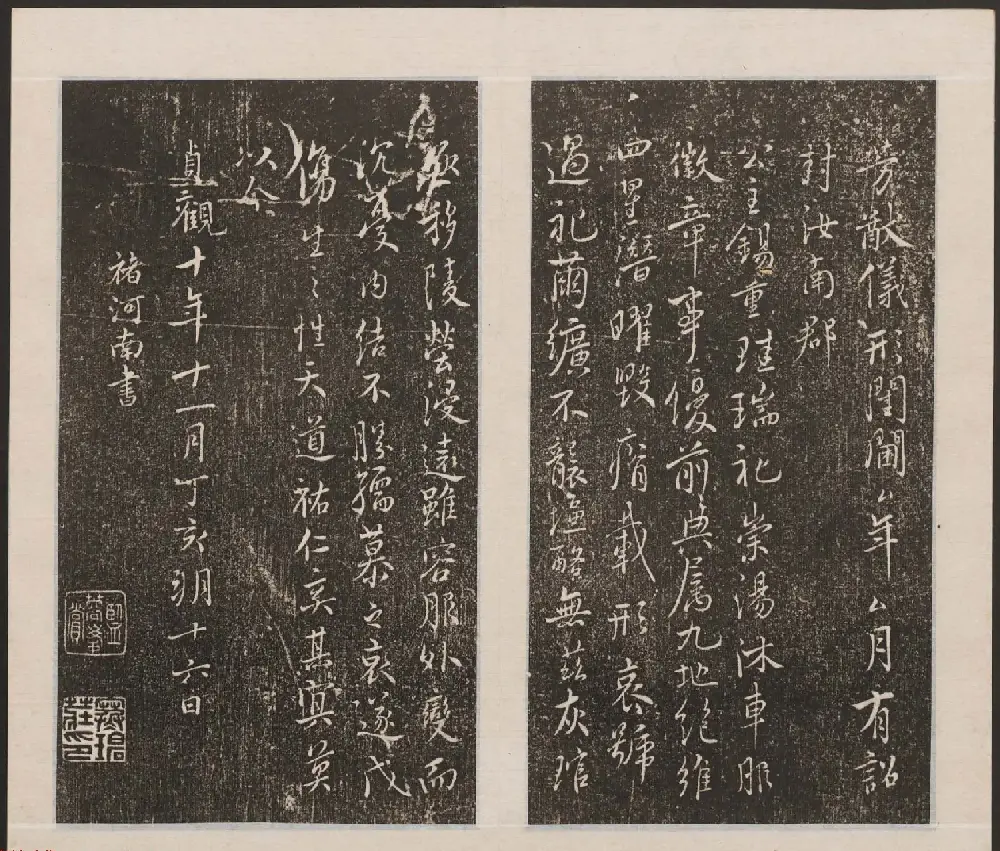 芳猷儀形閨閫厶年厶月有詔
封汝南郡
公主錫重珪瑞禮崇湯沐車服
徽章事優前典屬九地絕維
四星潛曜毀瘠載形哀號
過禮繭纊不襲鹽酪無茲灰琯
亟移陵塋浸遠雖容服外變而
沉憂內結不勝孺慕之哀遂戊
傷生之性天道祐仁奚其冥莫
以今
貞觀十年十一月丁亥朔十六日
褚河南書